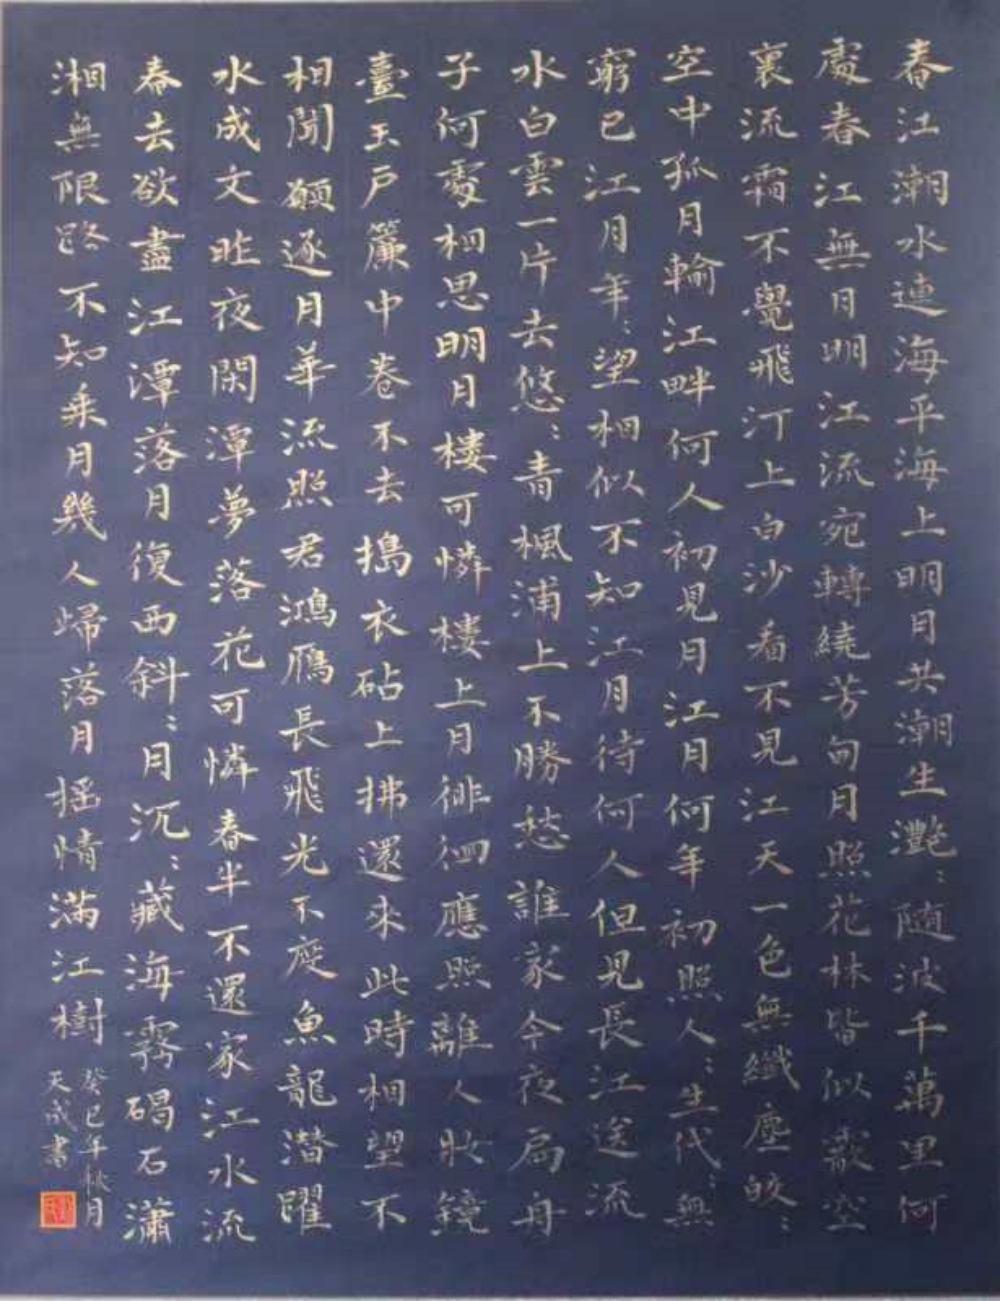 春江潮水連海平海上明月共潮生灔〻随波千萬里何
處春江無月明江流宛轉繞芳甸月照花林皆似霰空
裏流霜不覺飛汀上白沙看不見江天一色無纖塵皎〻
空中孤月輪江畔何人初見月江月何年初照人〻生代〻無
窮已江月年〻望相似不知江月待何人但見長江送流
水白雲一片去悠〻青楓浦上不勝愁誰家今夜扁舟
子何處相思明月樓可憐樓上月徘徊應照離人妝鏡
臺玉戶簾中卷不去搗衣砧上拂還來此時相望不
相聞願逐月華流照君鴻雁長飛光不度魚龍潜躍
水成文昨夜閑潭夢落花可憐春半不還家江水流
春去欲盡江潭落月復西斜〻月沉〻藏海霧碣石瀟
湘無限路不知乘月幾人歸落月搖情滿江樹
癸巳年秋月
天成書